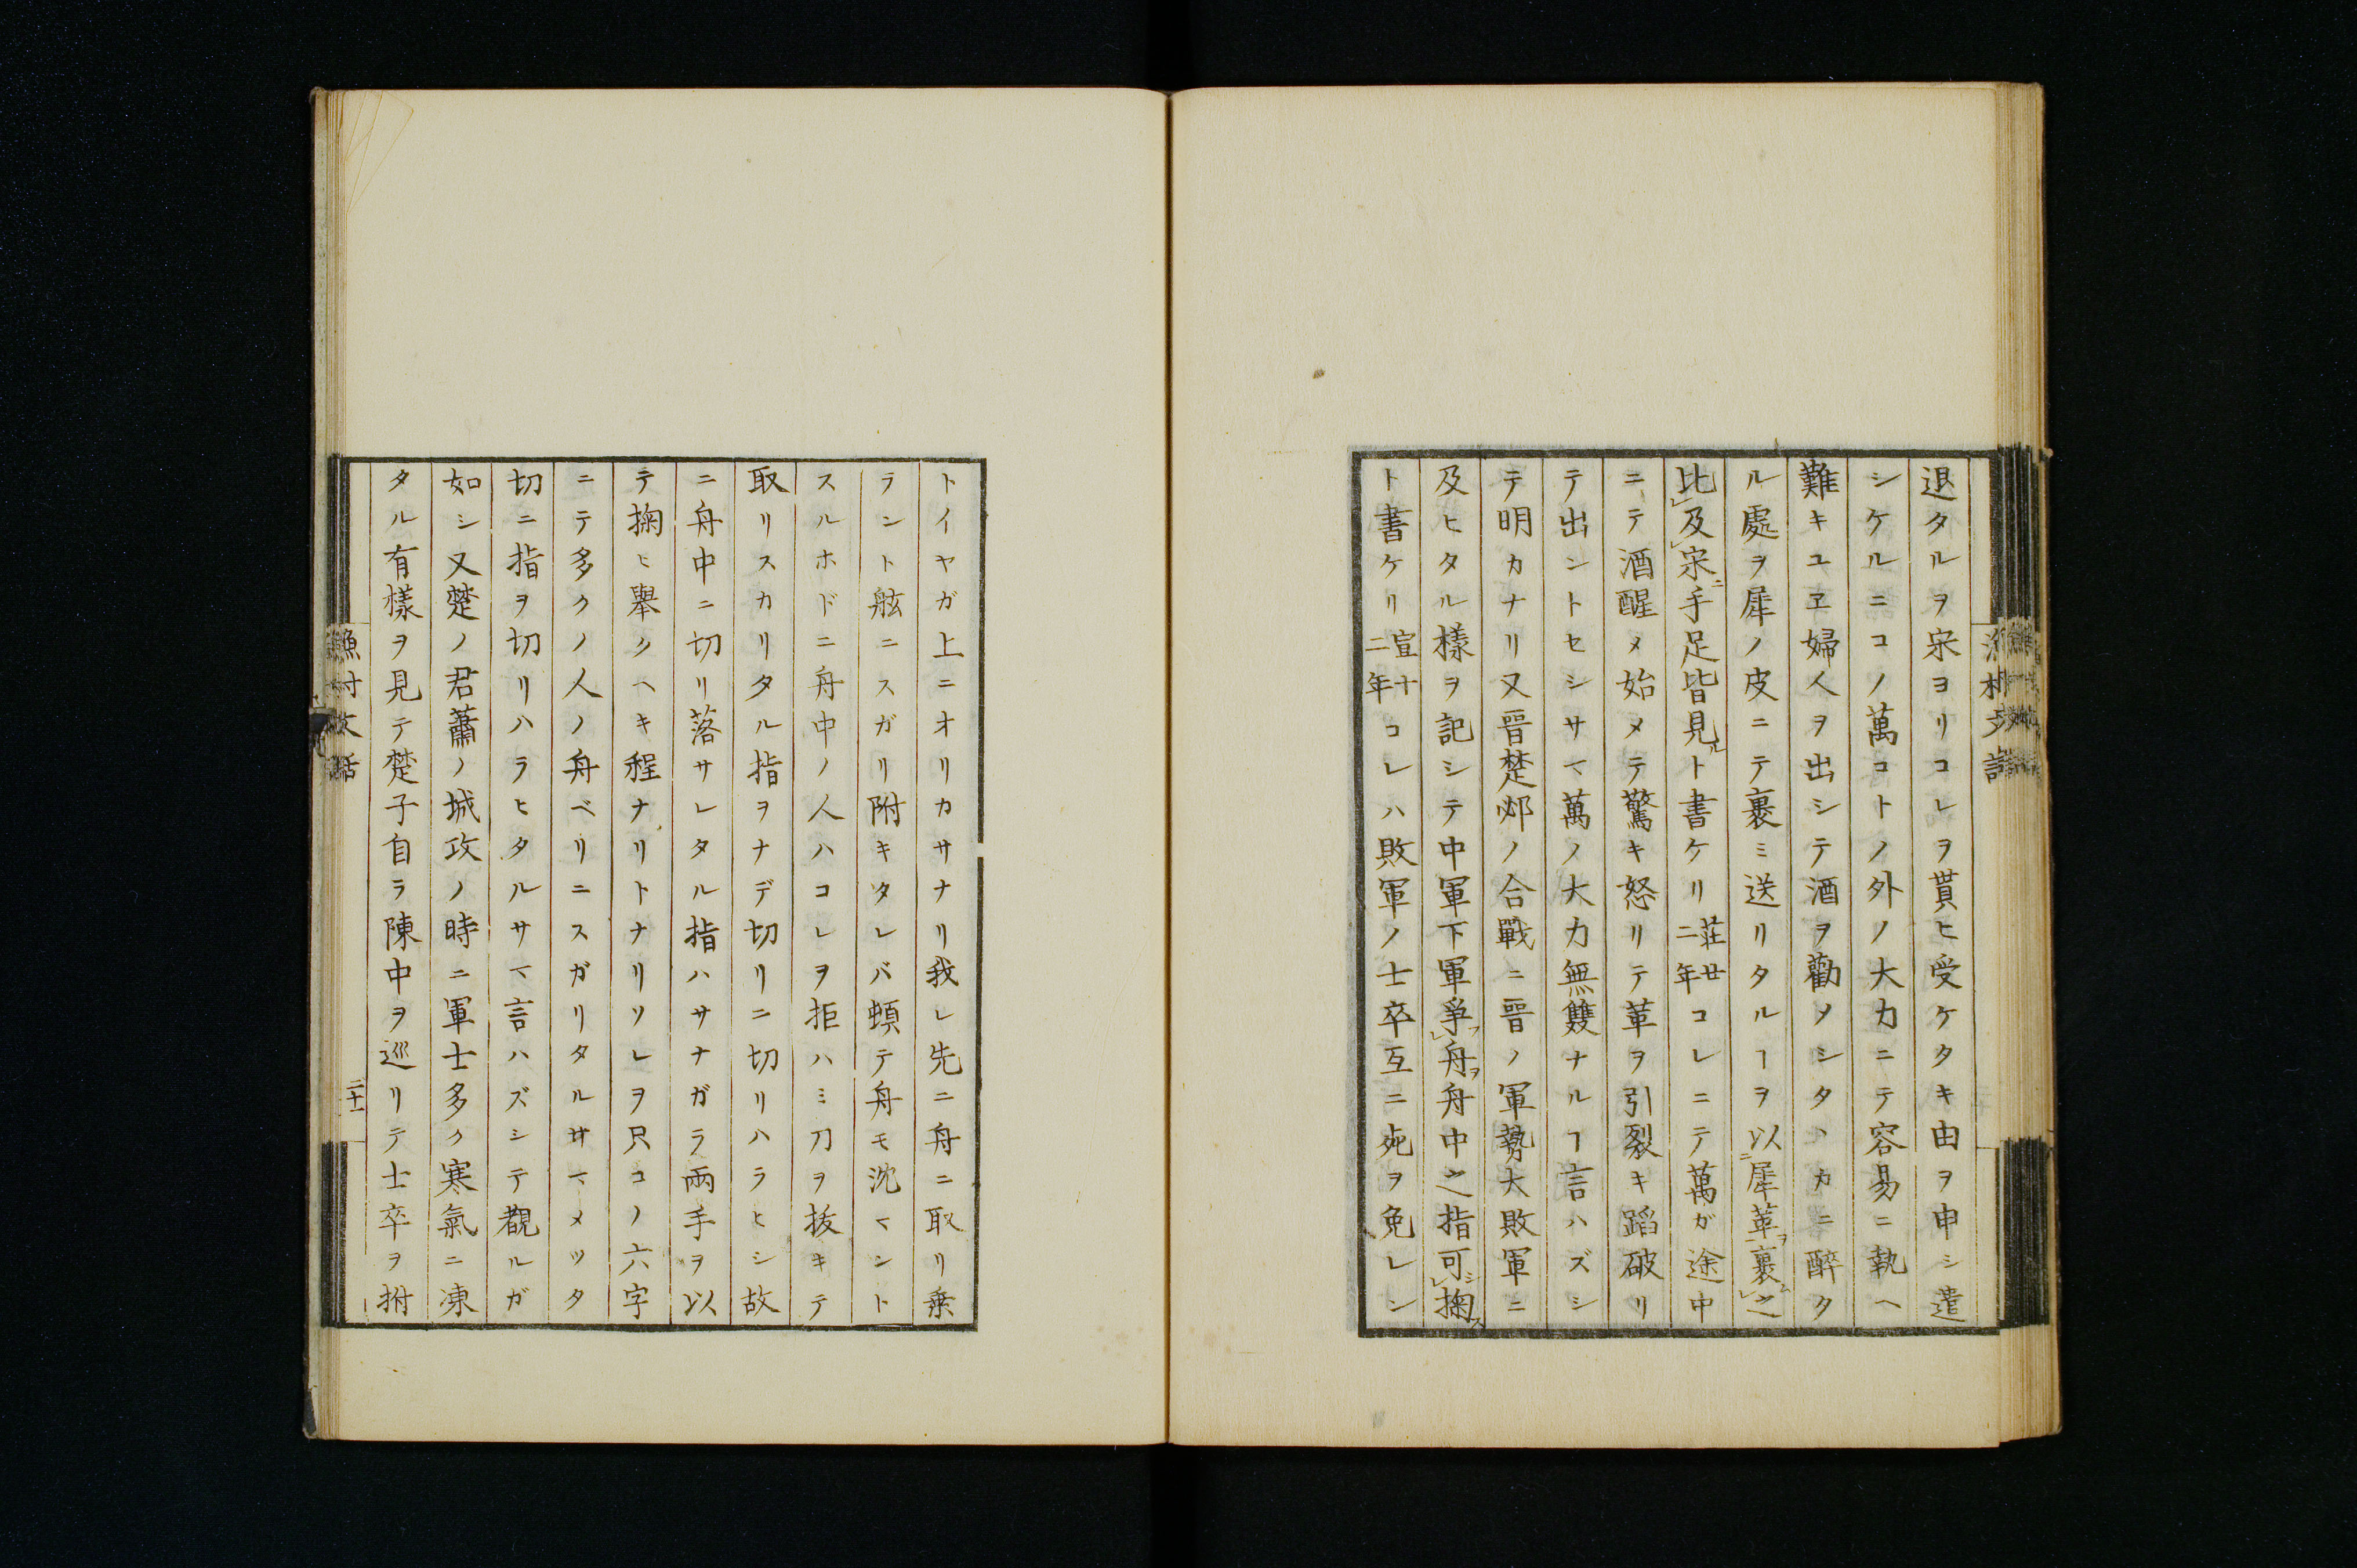 退タルヲ宋ヨリコレヲ貰ヒ受ケタキ由ヲ申シ遣
シケルニコノ萬コトノ外ノ大力ニテ容易ニ執ヘ
難キユヱ婦人ヲ出シテ酒ヲ勸メシタヽカニ醉タ
ル處ヲ犀ノ皮ニテ裹ミ送リタルヿヲ以犀革裹之
比及宋手足皆見ト書ケリ莊廿二年コレニテ萬ガ途中
ニテ酒醒メ始メテ驚キ怒リテ革ヲ引裂キ蹈破リ
テ出ントセシサマ萬ノ大力無雙ナルヿ言ハズシ
テ明カナリ又晉楚邲ノ合戰ニ晉ノ軍勢大敗軍ニ
及ヒタル樣ヲ記シテ中軍下軍爭舟舟中之指可掬
ト書ケリ宣十二年コレハ敗軍ノ士卒互ニ死ヲ免レン
トイヤガ上ニオリカサナリ我レ先ニ舟ニ取リ乗
ラント舷ニスガリ附キタレバ頓テ舟モ沈マント
スルホドニ舟中ノ人ハコレヲ拒ハミ刀ヲ抜キテ
取リスカリタル指ヲナデ切リニ切リハラヒシ故
ニ舟中ニ切リ落サレタル指ハサナガラ兩手ヲ以
テ掬ヒ舉クヘキ程ナリトナリソレヲ只コノ六字
ニテ多クノ人ノ舟ベリニスガリタルサマメツタ
切ニ指ヲ切リハラヒタルサマ言ハズシテ觀ルガ
如シ又楚ノ君蕭ノ城攻ノ時ニ軍士多ク寒氣ニ凍
タル有樣ヲ見テ楚子自ラ陳中ヲ巡リテ士卒ヲ拊
漁村文話
二十一